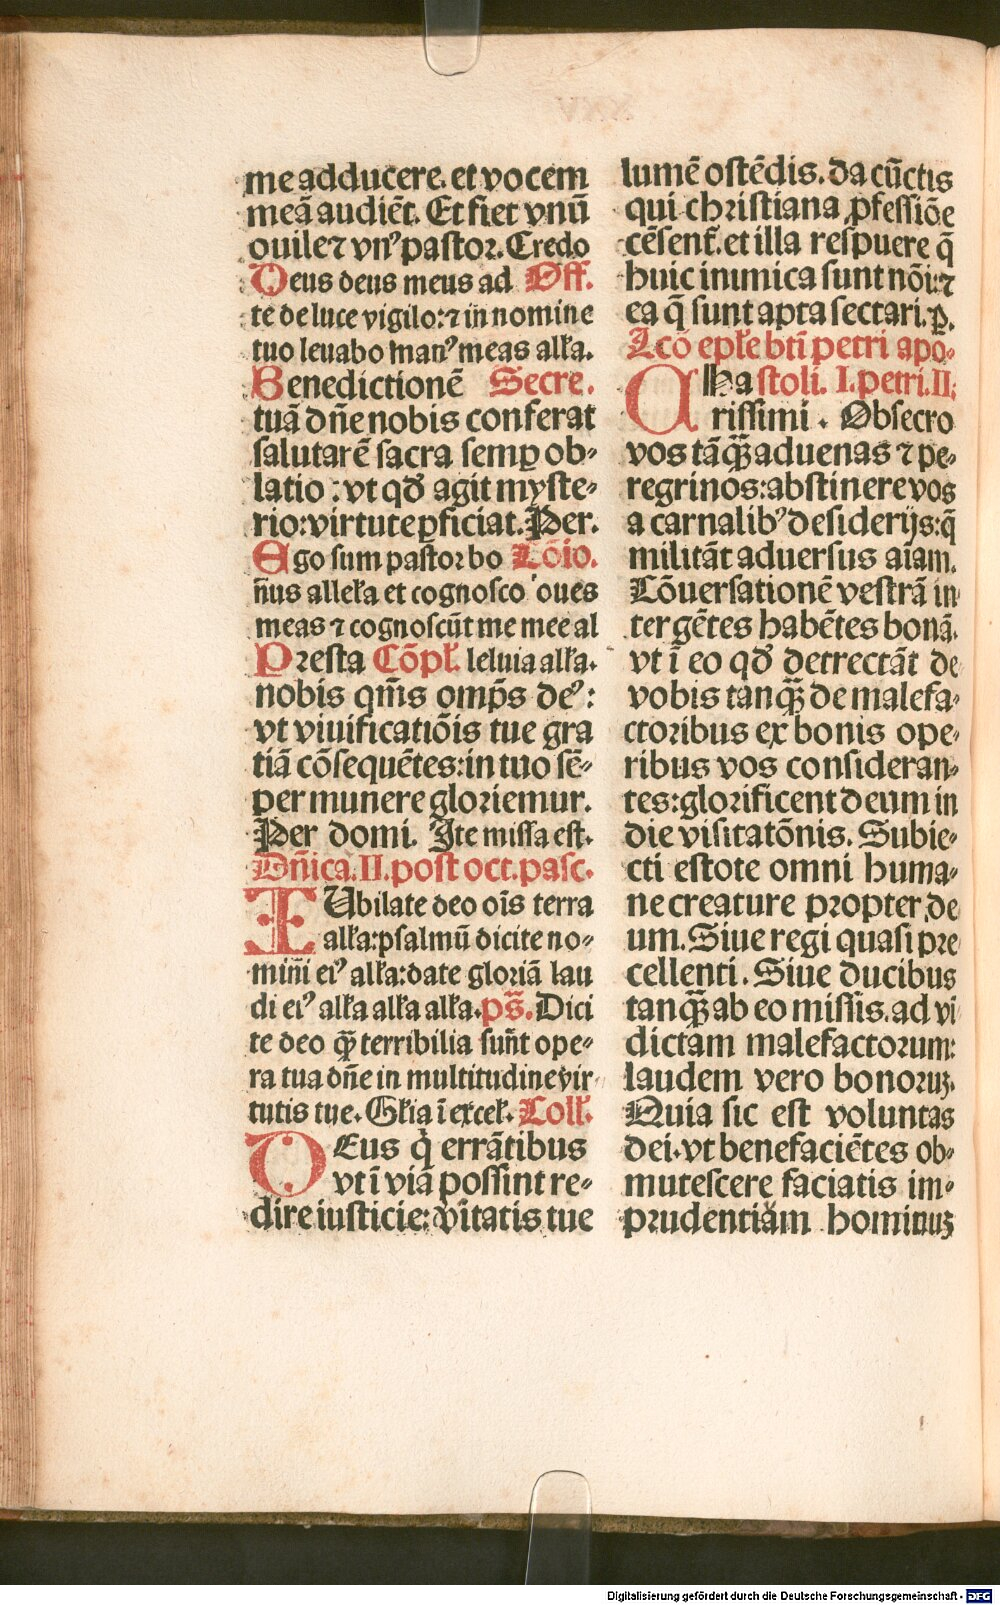 me adducere. et vocem
meā audiēt. Et fiet vnū
ouile ⁊ vnꝰ pastor. Credo
Deus deus meus ad Off.
te de luce vigilo: ⁊ in nomine
tuo leuabo manꝰ meas alła.
Benedictionē Secre.
tuā dn̄e nobis conferat
salutarē sacra semꝑ ob⸗
latio: vt qđ agit myste⸗
rio: virtute ꝑficiat. Per.
Ego sum pastor bo Cōio.
n̄us alleła et cognosco oues
meas ⁊ cognoscūt me mee al
Presta Cōpł. leluia alła.
nobis qm̄s omp̄s deꝰ:
vt viuificatiōis tue gra
tiā cōsequētes: in tuo sē⸗
per munere gloriemur.
Per domi. Ite missa est.
Dn̄ica. II. post oct. pasc.
IUbilate deo oīs terra
alła: psalmū dicite no⸗
mini eiꝰ alła: date gloriā lau
di eiꝰ alła alła alła. ps̄. Dici
te deo qꝫ̄ terribilia sun̄t ope⸗
ra tua dn̄e in multitudine vir⸗
tutis tue. Głia ī exceł. Coll.
DEus q̇ errātibus
vt ī viā possint re⸗
dire iusticie: v̄itatis tue
lumē ostēdis. da cūctis
qui christiana ꝓfessiōe
cēsent̄. et illa respuere q̄
huic inimica sunt nōi: ⁊
ea q̄ sunt apta sectari. ꝑ.
Lcō epłe btī petri apo⸗
Cha stoli. I. petri. II.
rissimi. Obsecro
vos tāqꝫ̄ aduenas ⁊ pe⸗
regrinos: abstinere vos
a carnalibꝰ desiderijs: q̄
militāt aduersus aīam.
Cōuersationē vestrā in
ter gētes habētes bonā.
vt ī eo qđ detrectāt de
vobis tanqꝫ̄ de malefa⸗
ctoribus ex bonis ope⸗
ribus vos consideran⸗
tes: glorificent deum in
die visitatōnis. Subie⸗
cti estote omni huma⸗
ne creature propter de
um. Siue regi quasi pre
cellenti. Siue ducibus
tanqꝫ̄ ab eo missis. ad vi
dictam malefactorum:
laudem vero bonoruꝫ.
Quia sic est voluntas
dei. vt benefaciētes ob⸗
mutescere faciatis im⸗
prudentiam hominuꝫ
Digitalisierung gefördert durch die Deutsche Forschungsgemeinschaft - DFG